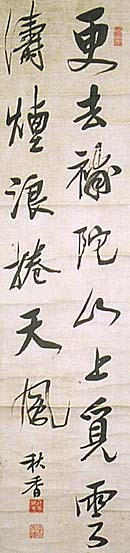 更去補陀山上覓雲
濤煙浪捲天風
秋香